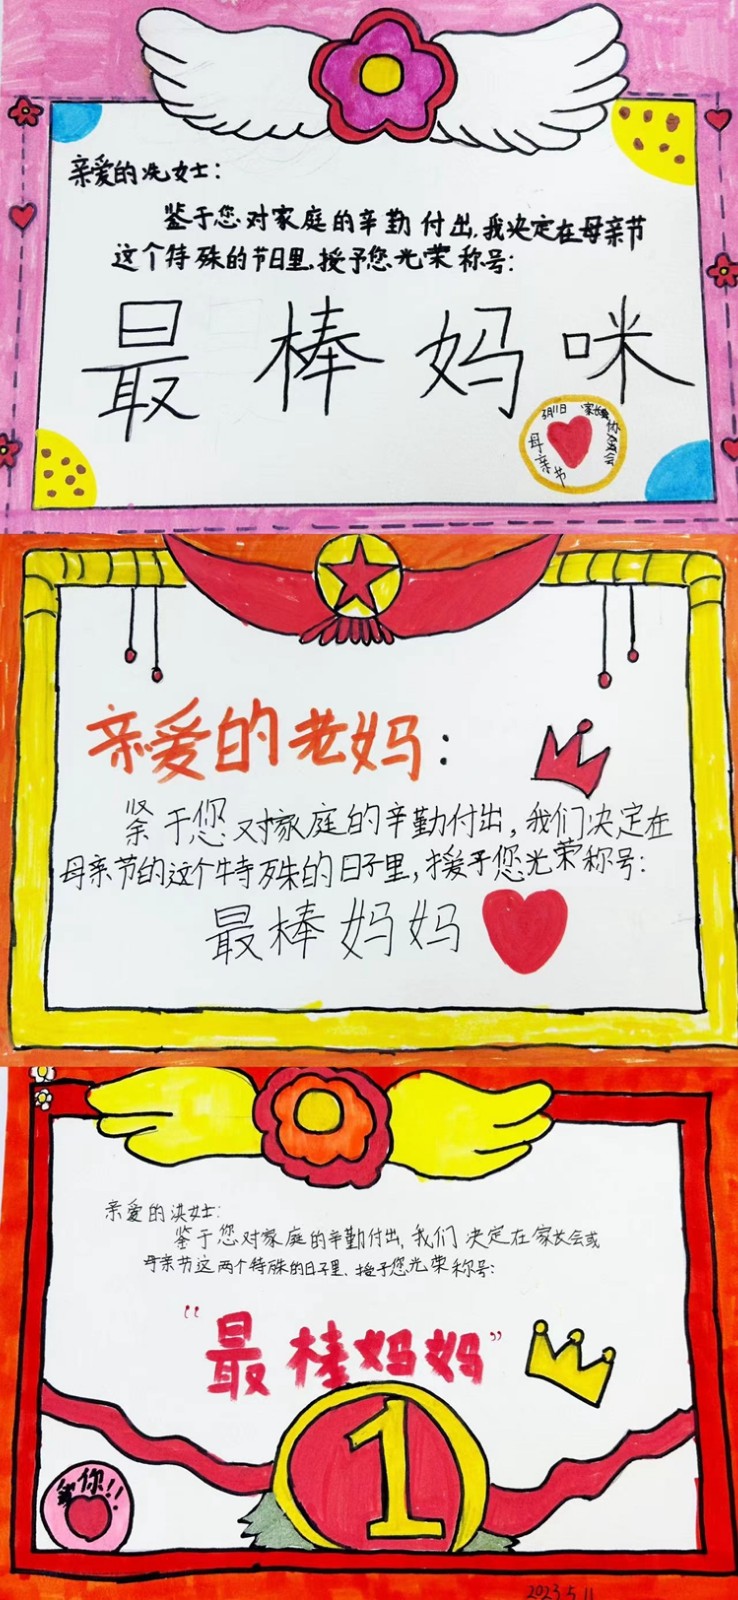 亲爱的冼女士：
鉴于您对家庭的辛勤付出，我决定在母亲节
这个特殊的节日里，授予您光荣称号：
最棒妈咪
母亲节
亲爱的老妈：
鉴于您对家庭的辛勤付出，我们决定在
母亲节的这个特殊的日子里，授予您光荣称号：
最棒妈妈
亲爱的洪女士：
鉴于您对家庭的辛勤付出，我们决定在家长会或
母亲节这两个特殊的日子里，授予您光荣称号：
“最棒妈妈”
1
爱你!!
2023.5.11